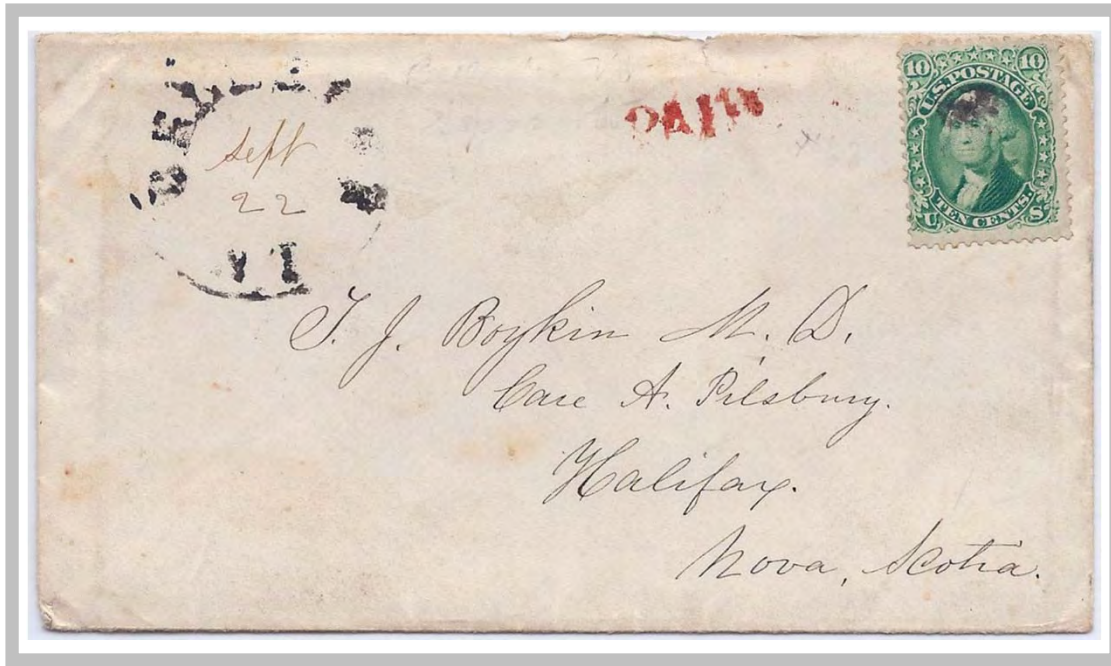 Sept
22
PAID
10 10
U.S. POSTAGE
TEN CENTS.
U S
T. J. Boykin M. D.
Care A. Pilsbury.
Halifax.
Nova, Scotia.